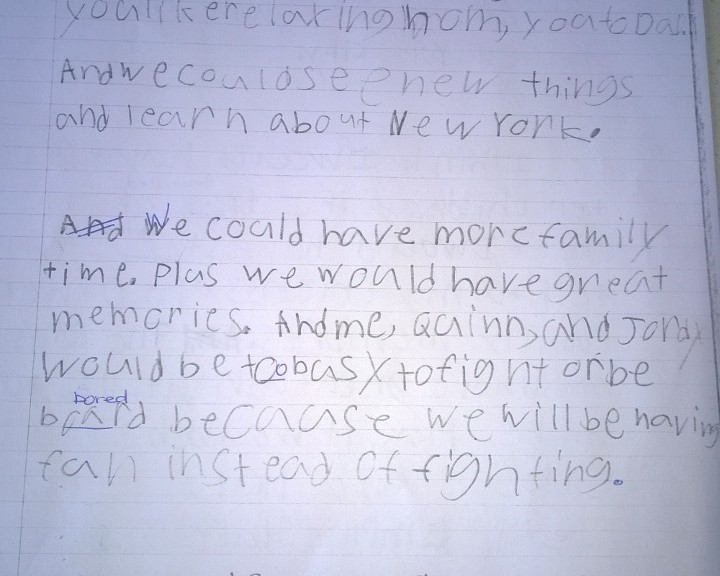 you like relaxing mom, you to Dad.
And we could see new things
and learn about New York.
And We could have more family
time. Plus we would have great
memories. And me, Quinn, and Jordy
would be too busy to fight or be
bored
board because we will be having
fun instead of fighting.